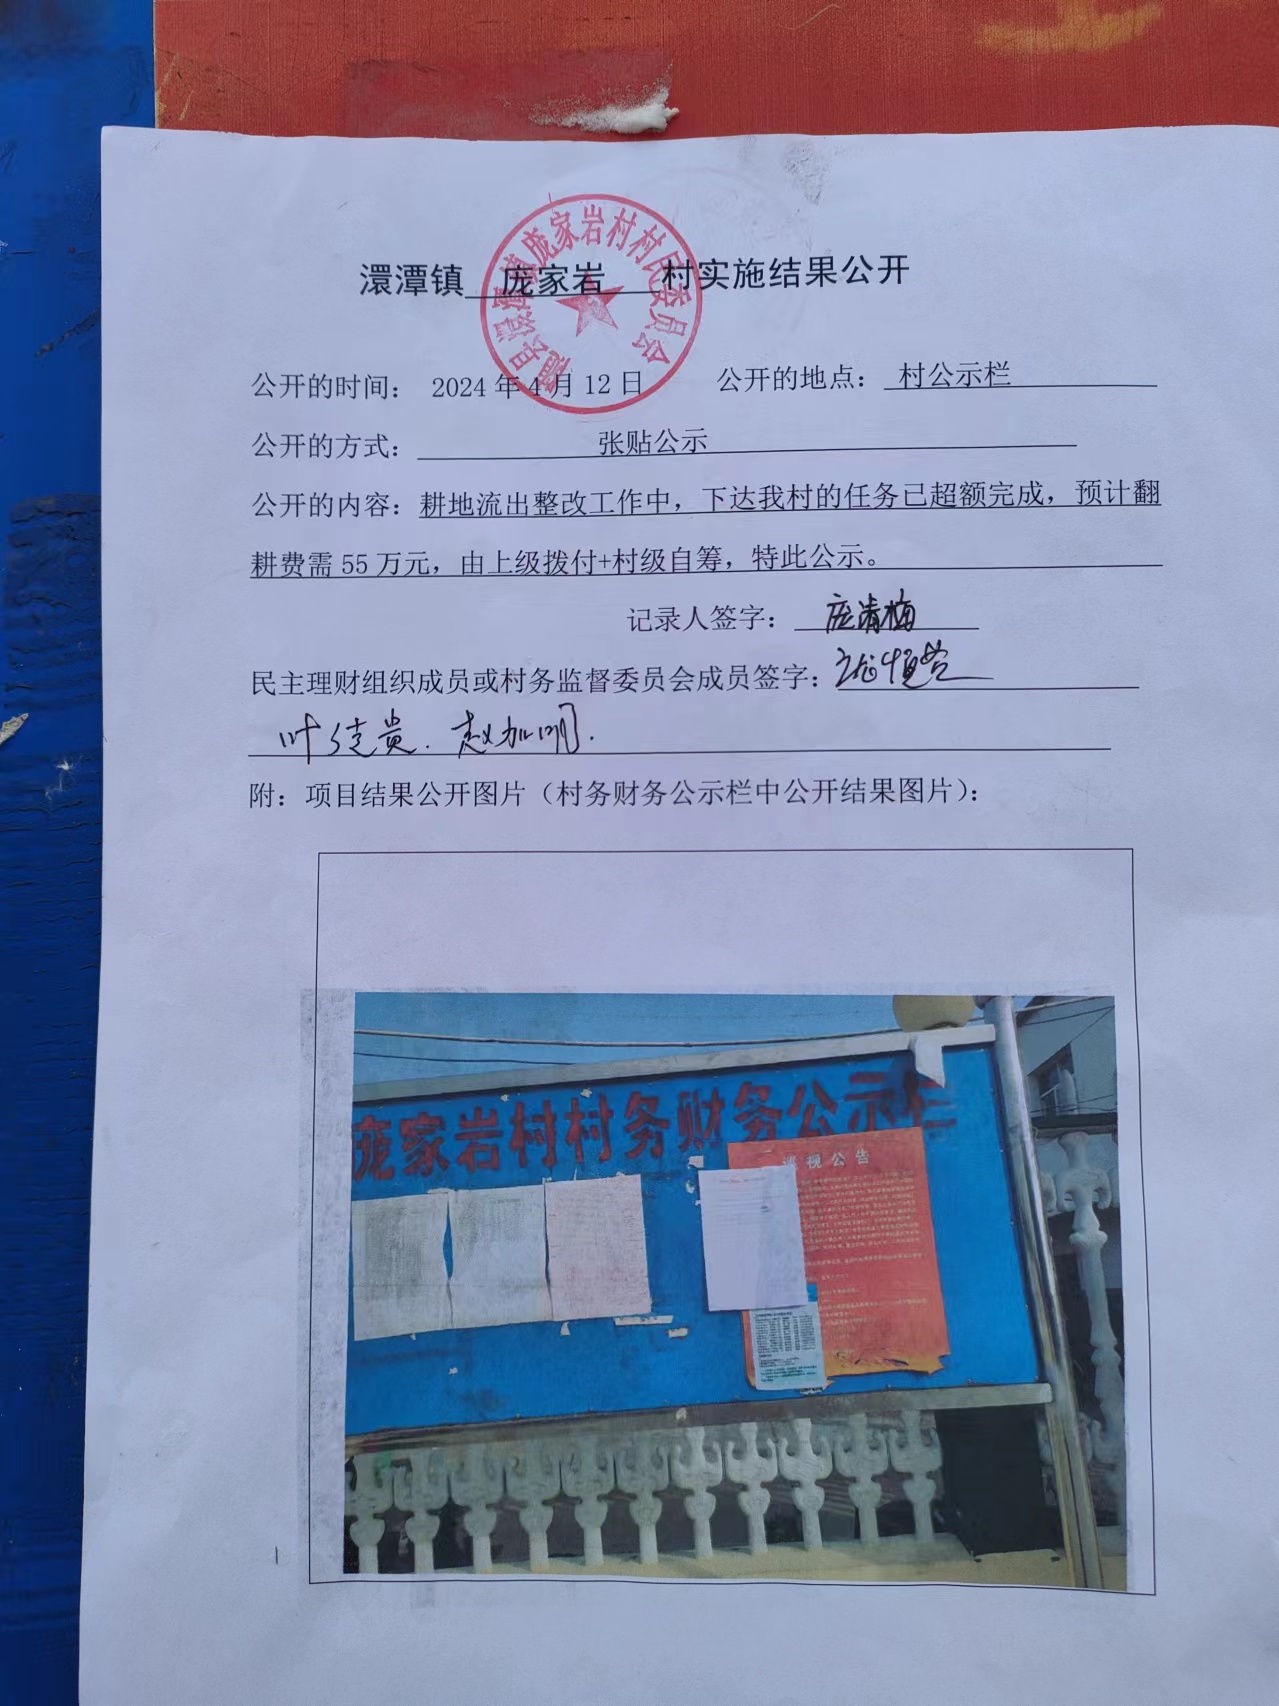 随县澴潭镇庞家岩村村民委员会
澴潭镇 庞家岩 村实施结果公开
公开的时间： 2024年4月12日 公开的地点： 村公示栏
公开的方式： 张贴公示
公开的内容：耕地流出整改工作中，下达我村的任务已超额完成，预计翻
耕费需55万元，由上级拨付+村级自筹，特此公示。
记录人签字： 庞清梅
民主理财组织成员或村务监督委员会成员签字：
赵加明.
附：项目结果公开图片（村务财务公示栏中公开结果图片）：
庞家岩村村务财务公示栏
巡视公告